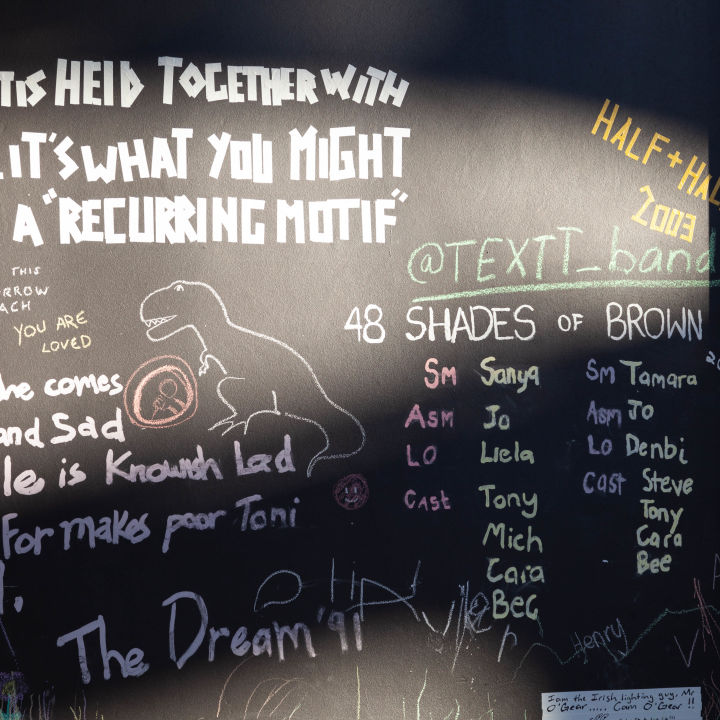 TIS HELD TOGETHER WITH
IT'S WHAT YOU MIGHT
A "RECURRING MOTIF"
HALF + HAL
2003
@TEXTT_band
THIS
RROW
EACH
YOU ARE
LOVED
48 SHADES OF BROWN
he comes
and Sad
le is Knowish Lad
For makes poor Toni
Sm Sanya
Asm Jo
LO Liela
Cast Tony
Mich
Cara
Bec
Sm Tamara
Asm Jo
Lo Denbi
Cast Steve
Tony
Cara
Bee
The Dream '91
Henry
I am the Irish lighting guy, Mr
O'Gear..... Cam O'Gear !!